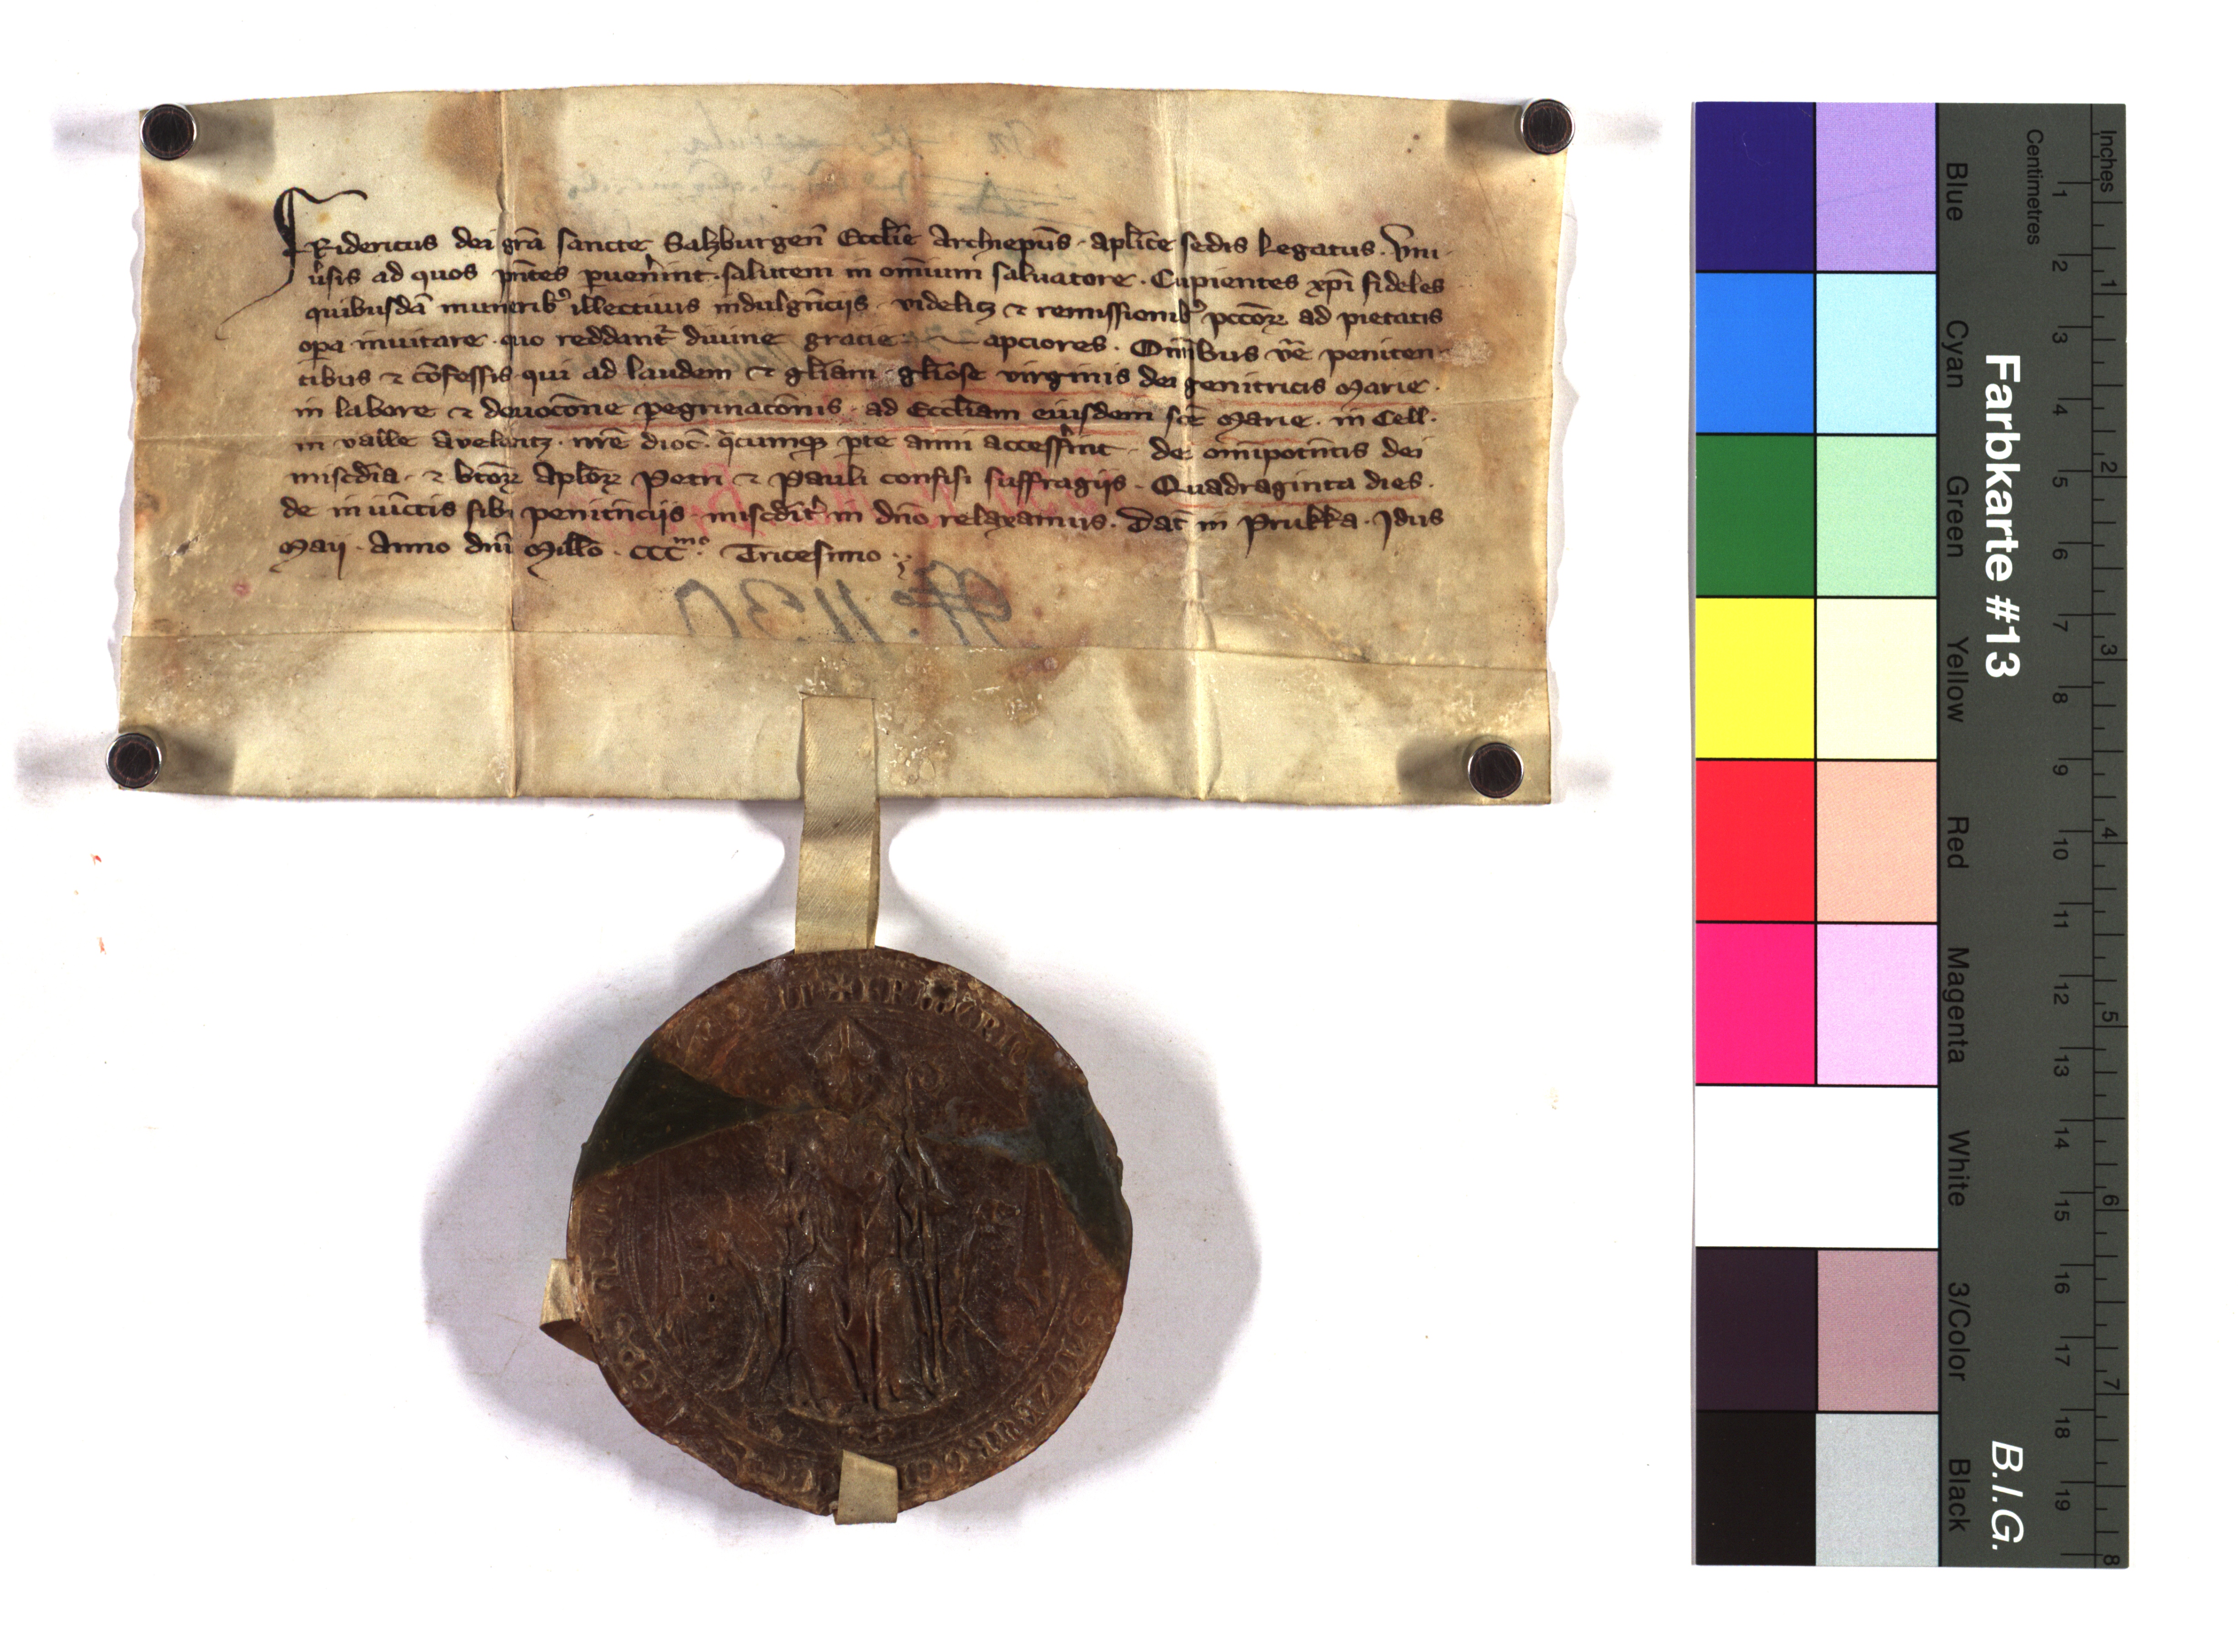 FRidericus dei grã sancte Salzburgeñ Eccl̃ie Archiepũs · apl̃ice sedis Legatus · Vni-
ũsis ad quos pñtes puen̾int · salutem in om̃ium saluatore · Cupientes xp̃i fideles
quibusdã munerib᷒ illectiuis indulgẽnciis · videlicꝫ ⁊ remissionib᷒ pcc̃oꝝ ad pietatis
oꝑa inuitare · quo reddant᷑ diuine gracie apciores · Om̃ibus ũe peniten-
tibus ⁊ cõfessis · qui ad laudem ⁊ gl̃iam · gl̃iose virginis dei genitricis Marie ·
in labore ⁊ deuoc̃one pegrinac̃onis · ad Eccl̃iam eiusdem sc̃e Marie · in Cell ·
in valle Avelentz · nr̃e dioc̃ · q̃cumqꝫ ꝑte anni access̾int · de om̃ipotñtis dei
mis̃cdia · ⁊ bt̃oꝝ Apl̃oꝝ Petri ⁊ Pauli confisi suffragijs · Quadraginta dies ·
de iniũctis sibi penitñcijs mis̃cdit᷑ in dño relaxamus · Dat̃ in Prukka · Jdus
Maij · Anno dñi Mill̃o · CCCᵐᵒ · Tricesimo ·
No. 1130
Blue
Cyan
Green
Yellow
Red
Magenta
White
3/Color
Black
Farbkarte #13
B.I.G.
Centimetres
1 2 3 4 5 6 7 8 9 10 11 12 13 14 15 16 17 18 19
Inches
1 2 3 4 5 6 7 8